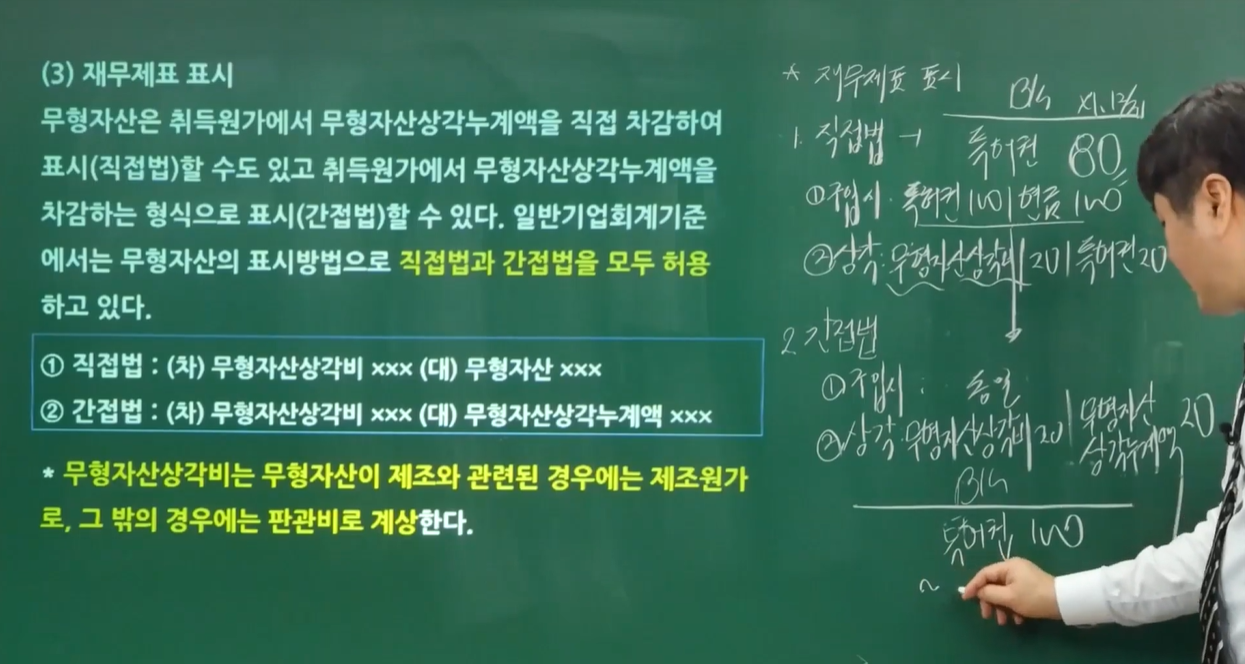 (3) 재무제표 표시
무형자산은 취득원가에서 무형자산상각누계액을 직접 차감하여
표시(직접법)할 수도 있고 취득원가에서 무형자산상각누계액을
차감하는 형식으로 표시(간접법)할 수 있다. 일반기업회계기준
에서는 무형자산의 표시방법으로 직접법과 간접법을 모두 허용
하고 있다.
① 직접법 : (차) 무형자산상각비 ××× (대) 무형자산 ×××
② 간접법 : (차) 무형자산상각비 ××× (대) 무형자산상각누계액 ×××
* 무형자산상각비는 무형자산이 제조와 관련된 경우에는 제조원가
로, 그 밖의 경우에는 판관비로 계상한다.
* 재무제표 표시
B/S x1. 12/31
1. 직접법 → 특허권 80
① 구입시 : 특허권 100 | 현금 100
② 상각 : 무형자산상각비 20 | 특허권 20
2. 간접법
① 구입시 : 동일
② 상각 : 무형자산상각비 20 | 무형자산
상각누계액 20
B/S
특허권 100
~